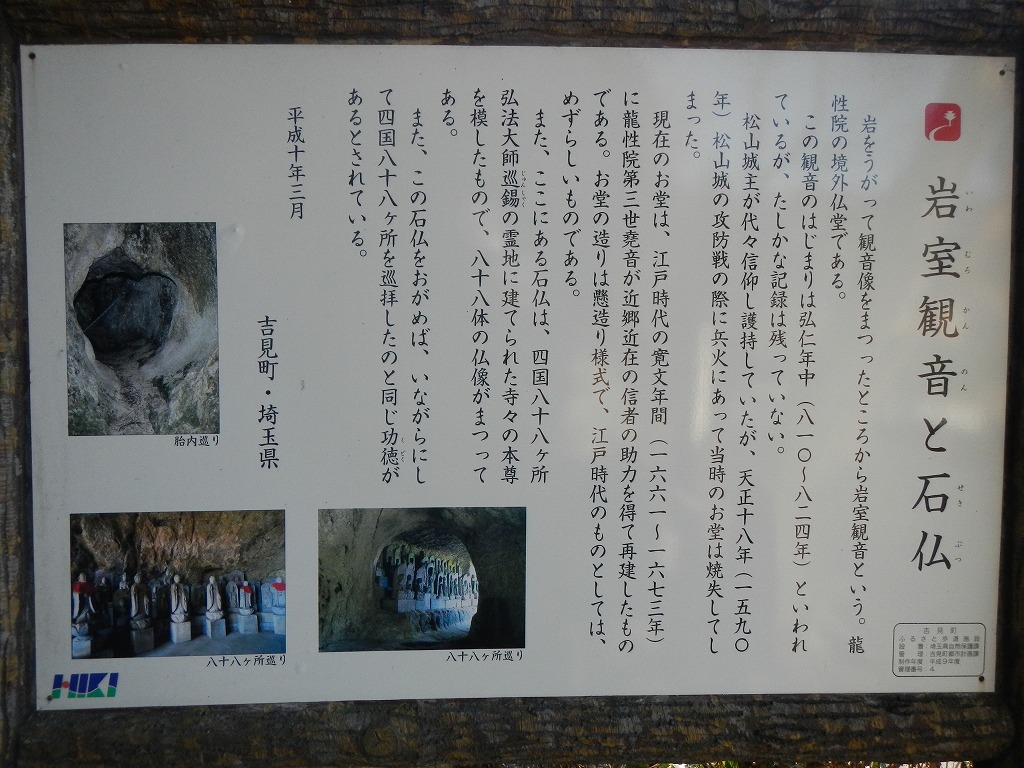 岩室観音と石仏
いわむろかんのん
せきぶつ
岩をうがって観音像をまつったところから岩室観音という。龍
性院の境外仏堂である。
この観音のはじまりは弘仁年中（八一〇～八二四年）といわれ
ているが、たしかな記録は残っていない。
松山城主が代々信仰し護持していたが、天正十八年（一五九〇
年）松山城の攻防戦の際に兵火にあって当時のお堂は焼失してし
まった。
現在のお堂は、江戸時代の寛文年間（一六六一～一六七三年）
に龍性院第三世堯音が近郷近在の信者の助力を得て再建したもの
である。お堂の造りは懸造り様式で、江戸時代のものとしては、
めずらしいものである。
また、ここにある石仏は、四国八十八ヶ所
弘法大師巡錫の霊地に建てられた寺々の本尊
じゅんしゃく
を模したもので、八十八体の仏像がまつって
ある。
また、この石仏をおがめば、いながらにし
て四国八十八ヶ所を巡拝したのと同じ功徳が
くどく
あるとされている。
平成十年三月
吉見町・埼玉県
胎内巡り
八十八ヶ所巡り
八十八ヶ所巡り
HIKI
吉見町
ふるさと歩道施設
設置：埼玉県自然保護課
管理：吉見町都市計画課
制作年度 平成9年度
管理番号：4